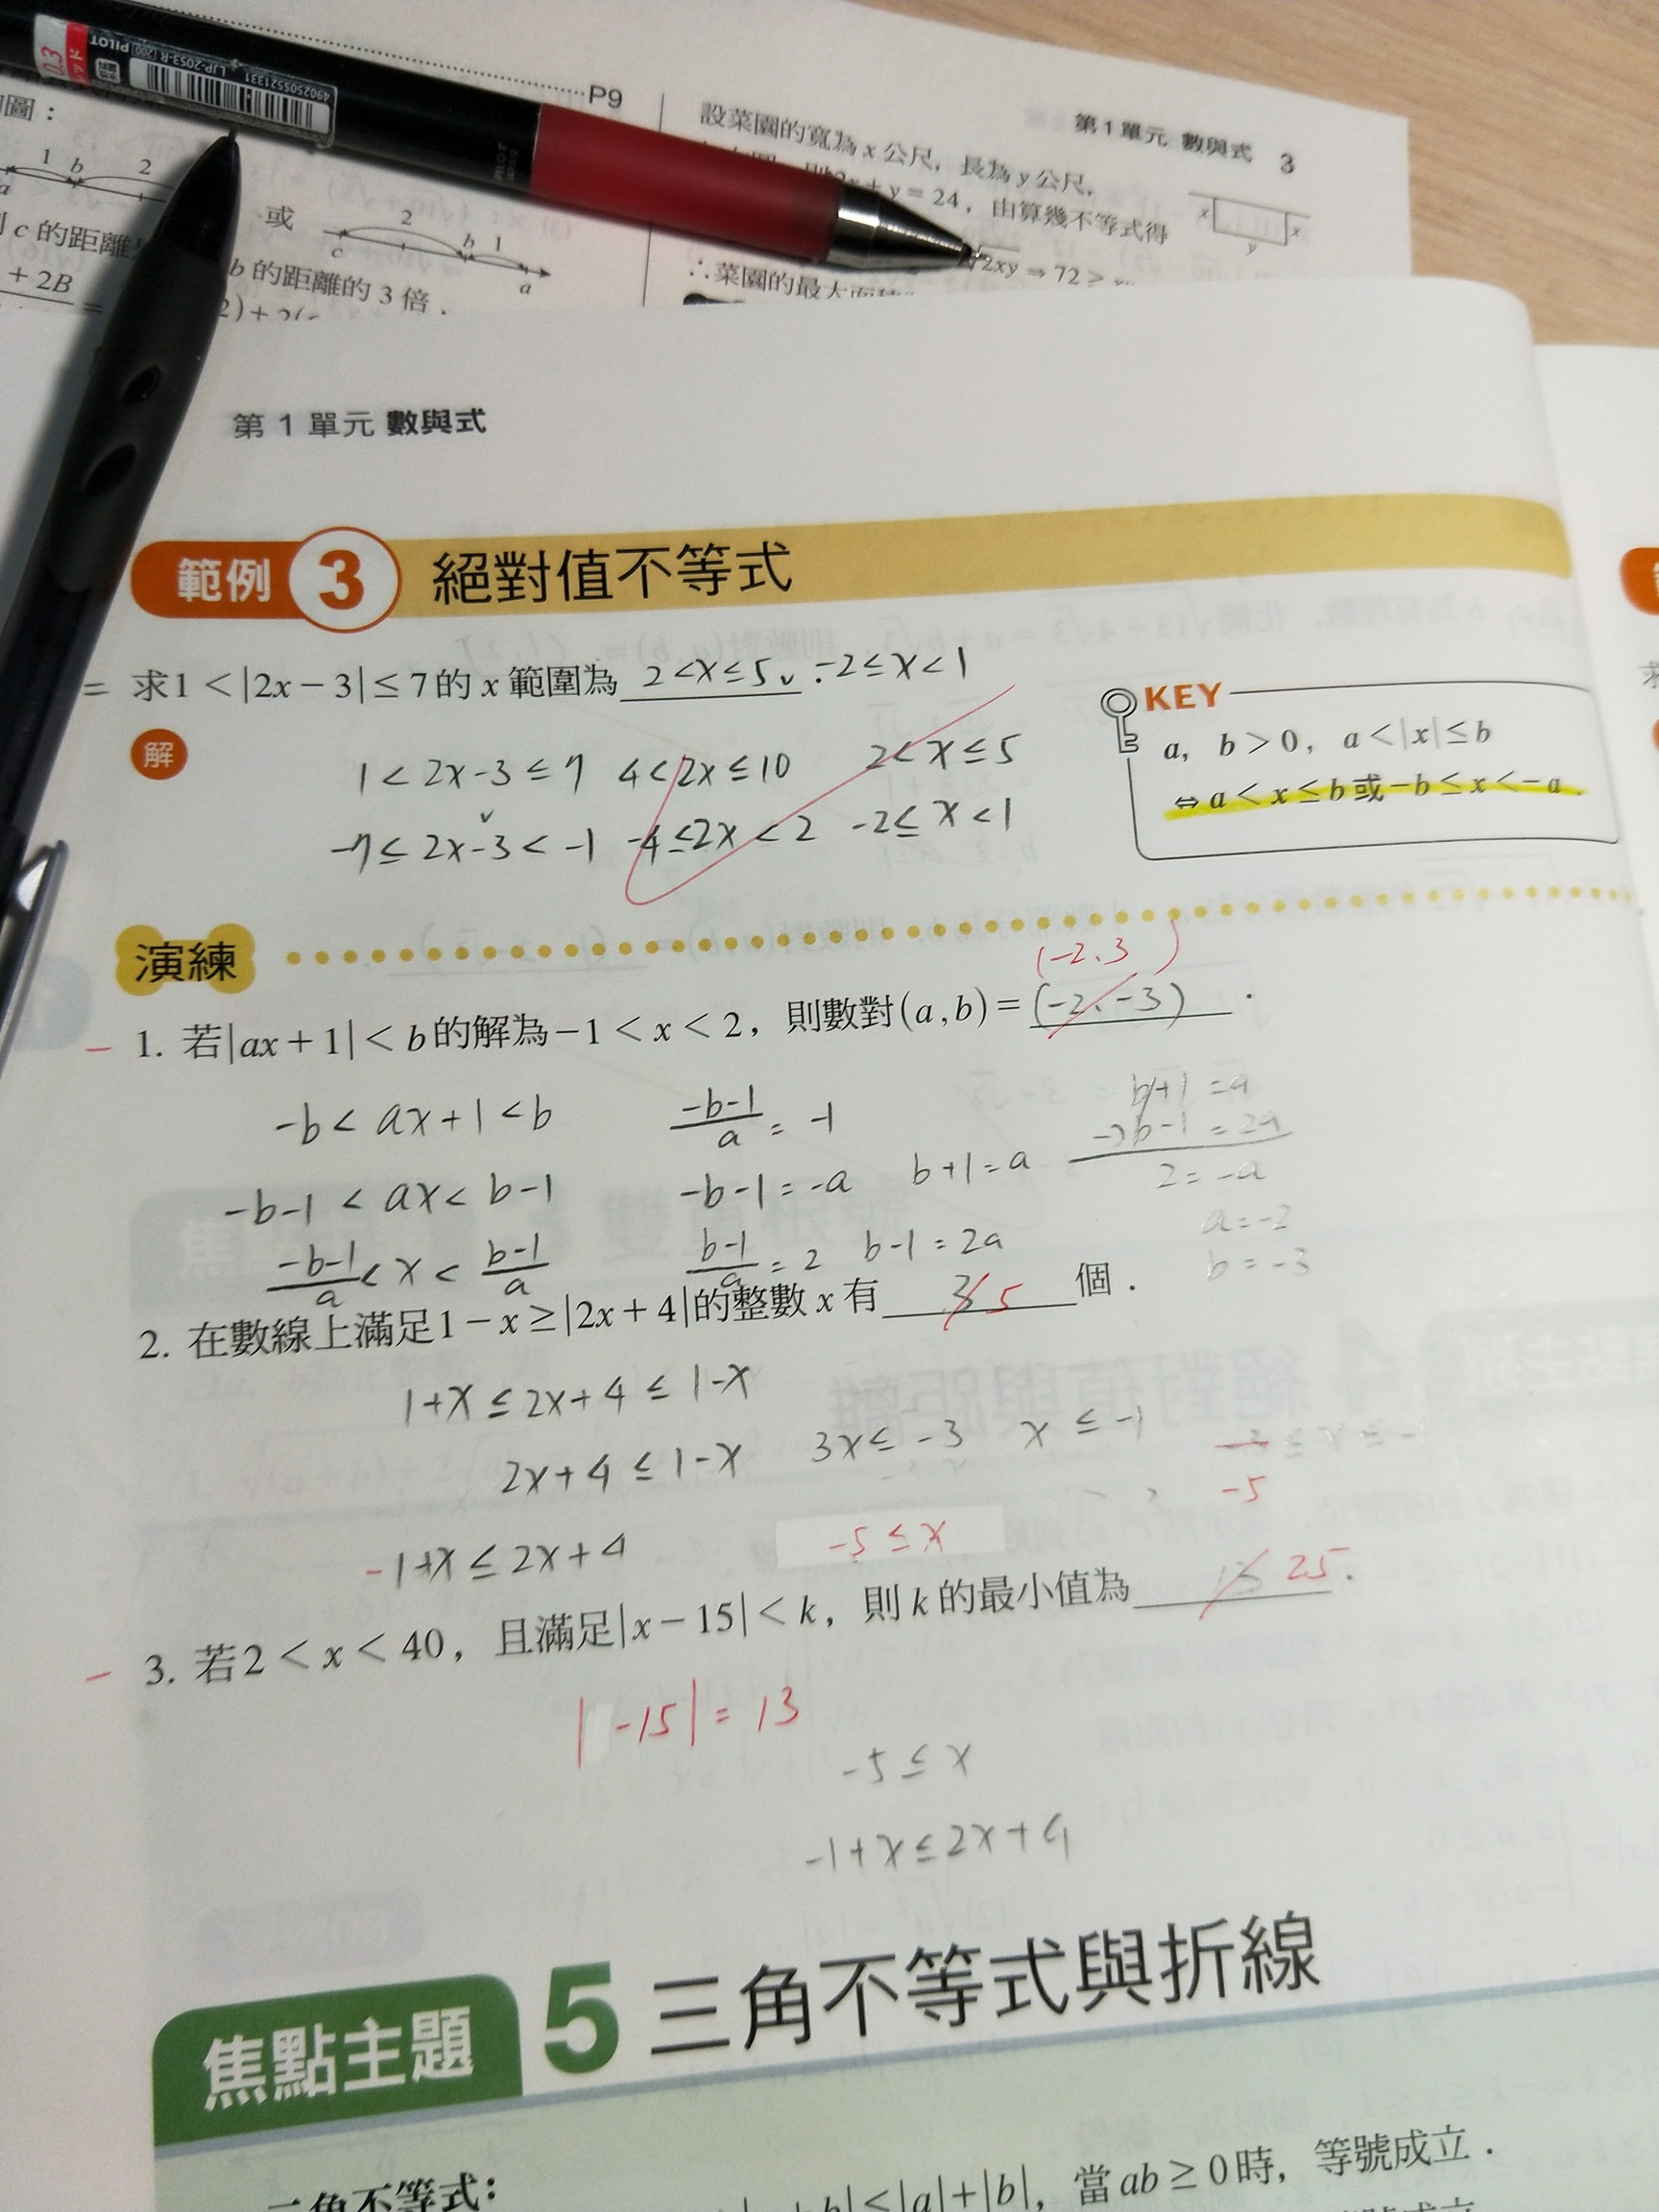 0.3
PILOT
LJP-20S3-R [200] PILOT
4902505521331
PILOT
P9
圖：
1 b 2
a
或
2
c b 1 a
c 的距離
b 的距離的 3 倍．
+ 2B
=
第1單元 數與式 3
設菜園的寬為 x 公尺，長為 y 公尺，
y = 24，由算幾不等式得
x x
y
2xy ⇒ 72 ≥
∴菜園的最大面積
第 1 單元 數與式
範例 3 絕對值不等式
= 求1 < |2x − 3| ≤ 7的 x 範圍為 2 < x ≤ 5 ∨ -2 ≤ x < 1
解
1 < 2x-3 ≤ 7 4 < 2x ≤ 10 2 < x ≤ 5
∨
-7 ≤ 2x-3 < -1 -4 ≤ 2x < 2 -2 ≤ x < 1
KEY
a, b > 0, a < |x| ≤ b
⇔ a < x ≤ b 或 −b ≤ x < −a .
演練
(-2, 3)
1. 若|ax + 1| < b的解為 −1 < x < 2，則數對(a, b) = (-2, -3) ．
-b < ax+1 < b
-b-1 < ax < b-1
-b-1/a < x < b-1/a
-b-1/a = -1
-b-1 = -a b+1 = a
b-1/a = 2 b-1 = 2a
b+1 = a
-)b-1 = 2a
2 = -a
a = -2
b = -3
2. 在數線上滿足1 − x ≥ |2x + 4|的整數 x 有 3 5 個．
1+x ≤ 2x+4 ≤ 1-x
2x+4 ≤ 1-x 3x ≤ -3 x ≤ -1
-5
-1+x ≤ 2x+4 -5 ≤ x
3. 若2 < x < 40，且滿足|x − 15| < k，則 k 的最小值為 13 25 .
| -15| = 13
-5 ≤ x
-1+x ≤ 2x+4
焦點主題 5 三角不等式與折線
角不等式：
≤ |a| + |b|，當 ab ≥ 0 時，等號成立．